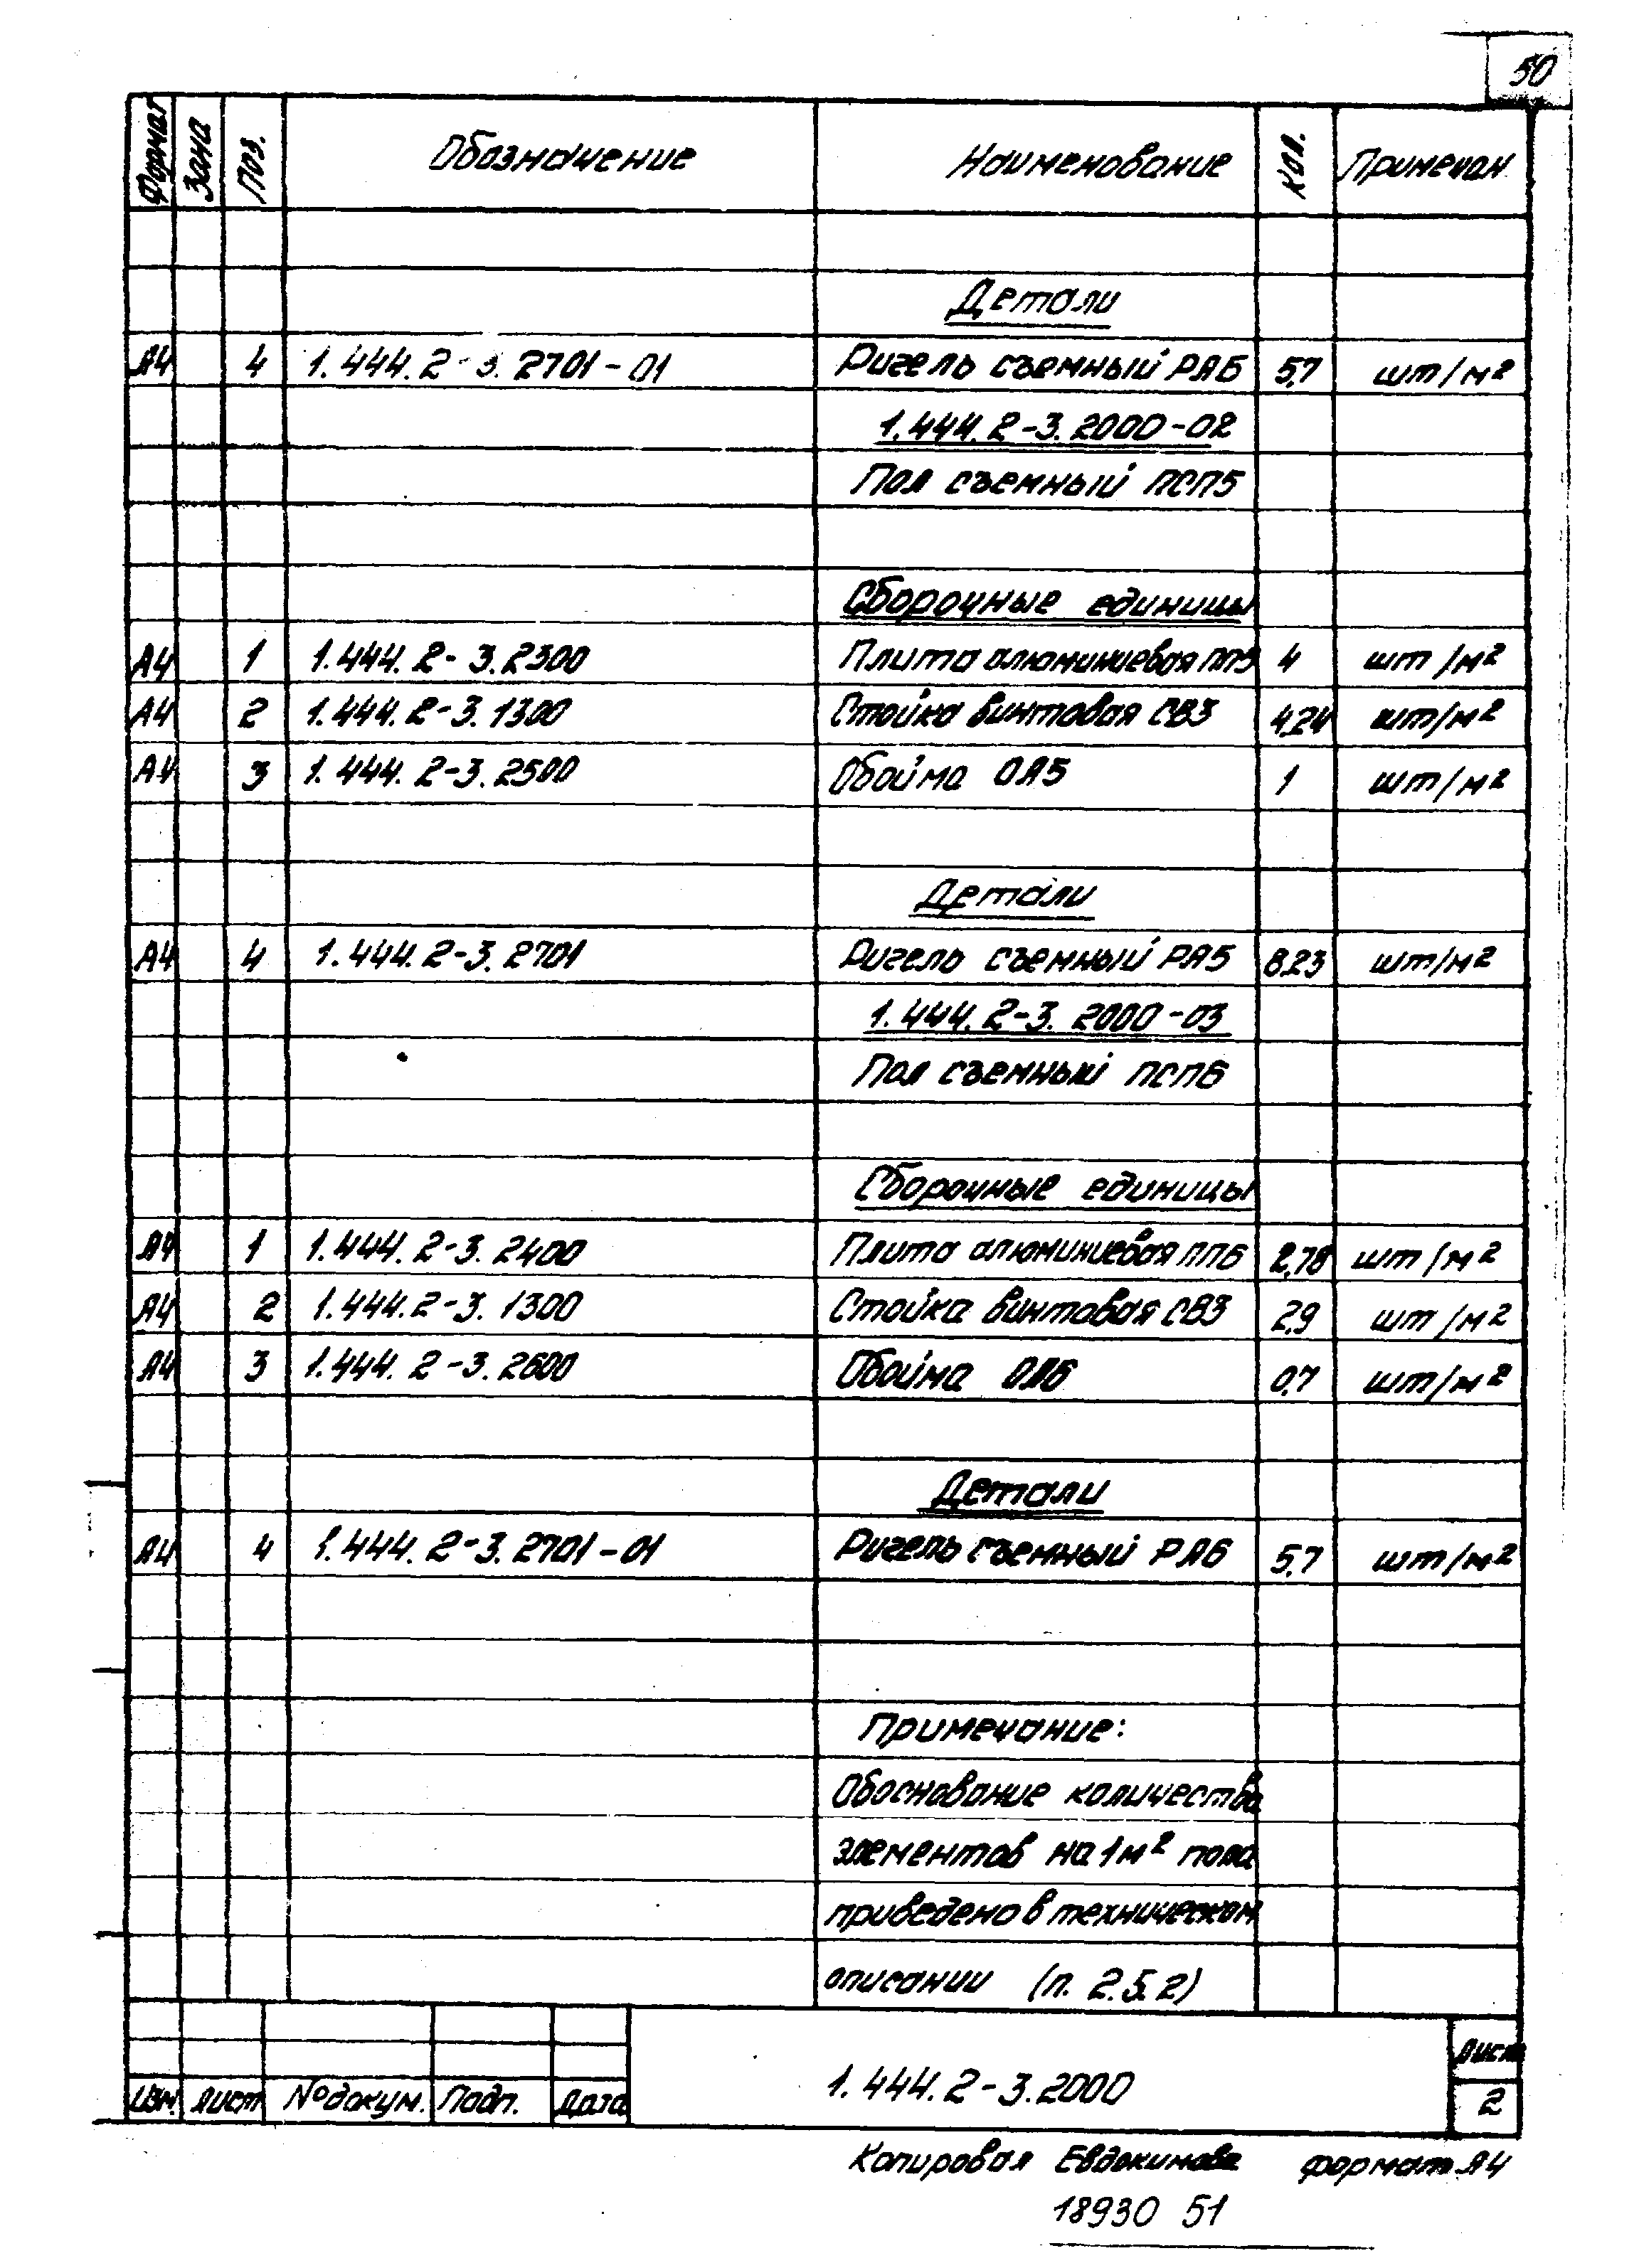 50
Формат Зона Поз. Обозначение Наименование Кол. Примечан.
Детали
А4 4 1.444.2-3.2701-01 Ригель съемный РА6 5,7 шт/м²
1.444.2-3.2000-02
Пол съемный ПСП5
Сборочные единицы
А4 1 1.444.2-3.2300 Плита алюминиевая ПП5 4 шт/м²
А4 2 1.444.2-3.1300 Стойка винтовая СВ3 4,24 шт/м²
А4 3 1.444.2-3.2500 Обойма ОА5 1 шт/м²
Детали
А4 4 1.444.2-3.2701 Ригель съемный РА5 8,23 шт/м²
1.444.2-3.2000-03
Пол съемный ПСП6
Сборочные единицы
А4 1 1.444.2-3.2400 Плита алюминиевая ПП6 2,78 шт/м²
А4 2 1.444.2-3.1300 Стойка винтовая СВ3 2,9 шт/м²
А4 3 1.444.2-3.2600 Обойма ОА6 0,7 шт/м²
Детали
А4 4 1.444.2-3.2701-01 Ригель съемный РА6 5,7 шт/м²
Примечание:
Обоснование количества
элементов на 1м² пола
приведено в техническом
описании (п. 2.5.2)
1.444.2-3.2000
Лист
2
Изм. Лист № докум. Подп. Дата
Копировал Евдокимова формат А4
18930 51